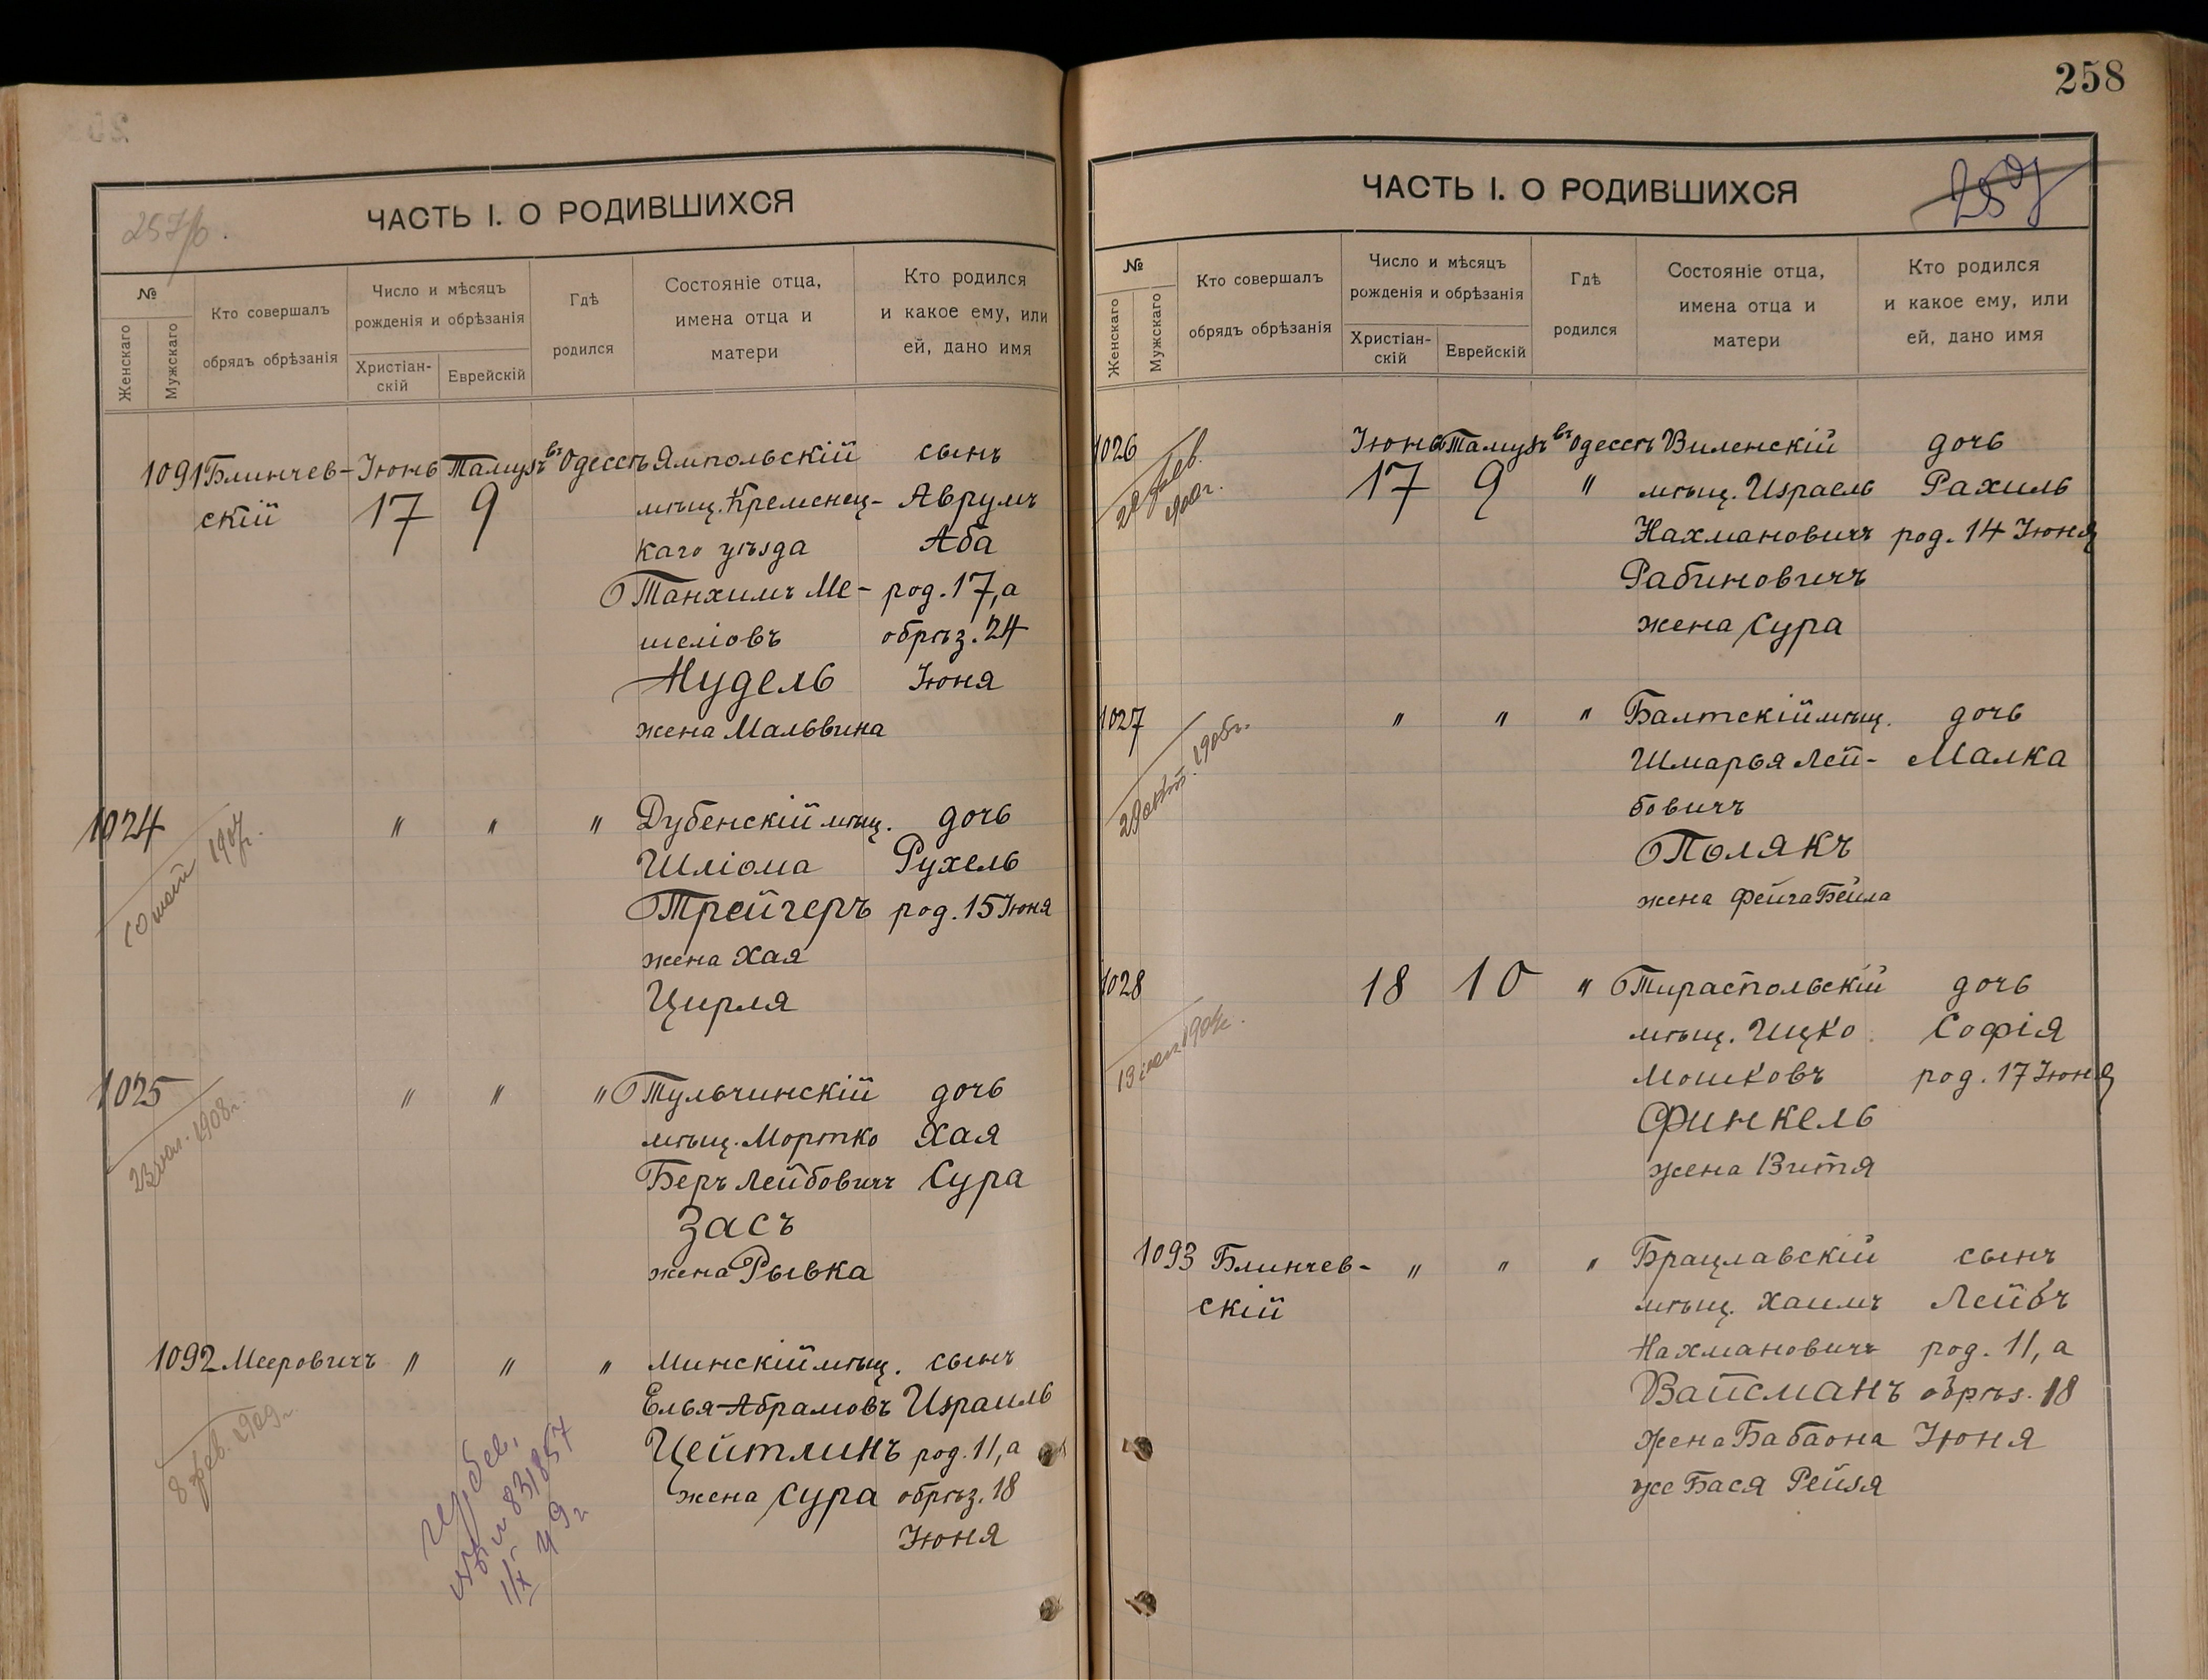 258
ЧАСТЬ I. О РОДИВШИХСЯ
№
Женскаго
Мужскаго
Кто совершалъ
обрядъ обрѣзанія
Число и мѣсяцъ
рожденія и обрѣзанія
Христіан-
скій
Еврейскій
Гдѣ
родился
Состояніе отца,
имена отца и
матери
Кто родился
и какое ему, или
ей, дано имя
1091 Блинчев- Іюнь Тамузъ въ Одессѣ Ямпольскій сынъ
скій 17 9 мѣщ. Кременец- Аврумъ
каго уѣзда Аба
Танхимъ Ме- род. 17, а
шеліовъ обрѣз. 24
Нудель Іюня
жена Мальвина
1024 " " " Дубенскій мѣщ. дочь
Шліома Рухель
Трейгеръ род. 15 Іюня
жена Хая
Цирля
10 май 1907г.
1025 " " " Тульчинскій дочь
мѣщ. Мортко Хая
Беръ Лейбовичъ Сура
Засъ
жена Рывка
1908г.
1092 Мееровичъ " " " Минскій мѣщ. сынъ
Елья-Абрамовъ Израиль
Цейтлинъ род. 11, а
жена Сура обрѣз. 18
Іюня
8 фев. 1909г.
ЧАСТЬ I. О РОДИВШИХСЯ
№
Женскаго
Мужскаго
Кто совершалъ
обрядъ обрѣзанія
Число и мѣсяцъ
рожденія и обрѣзанія
Христіан-
скій
Еврейскій
Гдѣ
родился
Состояніе отца,
имена отца и
матери
Кто родился
и какое ему, или
ей, дано имя
1026 Іюнь Тамузъ въ Одессѣ Виленскій дочь
17 9 " мѣщ. Израель Рахиль
Нахмановичъ род. 14 Іюня
Рабиновичъ
жена Сура
1027 " " " Балтскій мѣщ. дочь
Шмарья Лей- Малка
бовичъ
Полякъ
жена Фейга Бейла
1028 18 10 " Тираспольскій дочь
мѣщ. Ицко Софія
Мошковъ род. 17 Іюня
Финкель
жена Витя
1093 Блинчев- " " " Брацлавскій сынъ
скій мѣщ. Хаимъ Лейбъ
Нахмановичъ род. 11, а
Вайсманъ обрѣз. 18
жена Бабаона Іюня
же Бася Рейзя